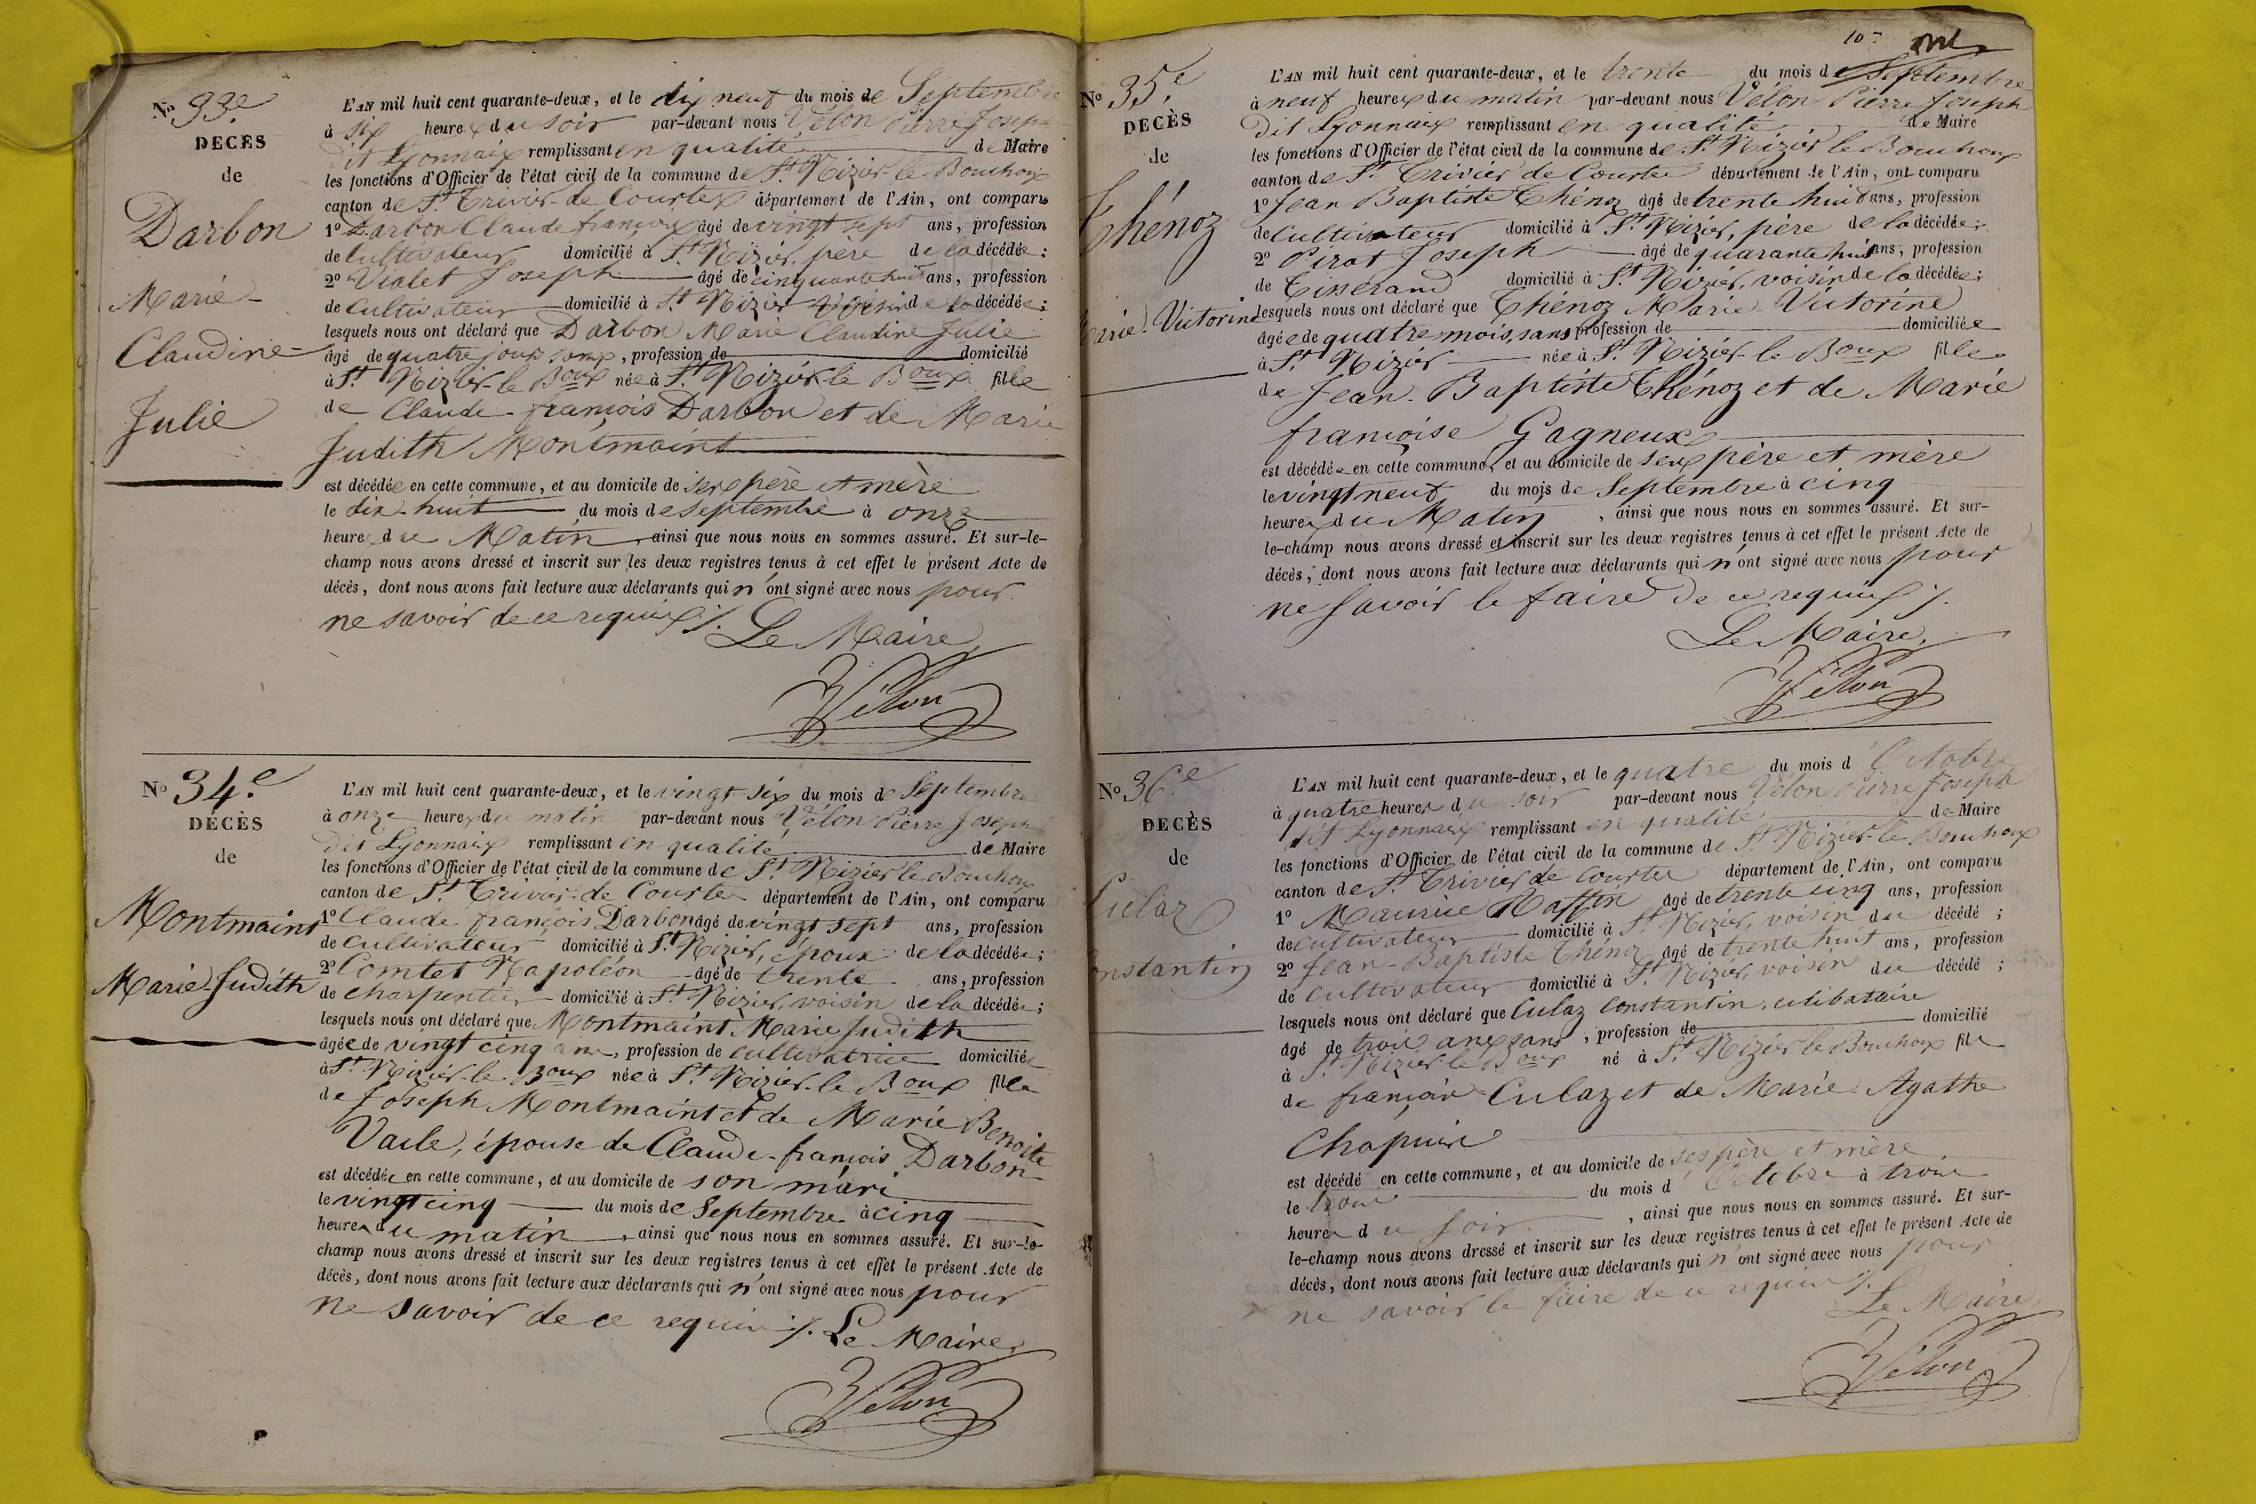 N.º 33.e
DÉCÈS
de
Darbon
Marie-
Claudine-
Julie
L'AN mil huit cent quarante-deux, et le dix neuf du mois de Septembre
à six heures du soir par-devant nous Vélon Pierre Joseph
dit Lyonnaix remplissant en qualité de Maire
les fonctions d'Officier de l'état civil de la commune de St Nizier-le-Bouchoux
canton de St. Trivier-de-Courtes département de l'Ain, ont comparu
1º Darbon Claude françois âgé de vingt sept ans, profession
de Cultivateur domicilié à St. Nizier, père de la décédée;
2º Vialet Joseph âgé de cinquante huit ans, profession
de Cultivateur domicilié à St Nizier voisin de la décédée;
lesquels nous ont déclaré que Darbon Marie Claudine Julie
âgé de quatre jours sans, profession de domicilié
à St Nizier-le Boux née à St Nizier-le Boux fille
de Claude-françois Darbon et de Marie
Judith Montmaint
est décédée en cette commune, et au domicile de ses père et mère
le dix-huit du mois de Septembre à onze
heures du Matin, ainsi que nous nous en sommes assuré. Et sur-le-
champ nous avons dressé et inscrit sur les deux registres tenus à cet effet le présent Acte de
décès, dont nous avons fait lecture aux déclarants qui n'ont signé avec nous pour
ne savoir de ce requis ./.
Le Maire,
Vélon
N.º 34.e
DÉCÈS
de
Montmaint
Marie-Judith
L'AN mil huit cent quarante-deux, et le vingt-six du mois de Septembre
à onze heures du matin par-devant nous Vélon Pierre Joseph
dit Lyonnaix remplissant en qualité de Maire
les fonctions d'Officier de l'état civil de la commune de St. Nizier le Bouchoux
canton de St. Trivier-de-Courtes département de l'Ain, ont comparu
1º Claude-françois Darbon âgé de vingt sept ans, profession
de Cultivateur domicilié à St Nizier, époux de la décédée;
2º Comtet Napoléon âgé de trente ans, profession
de charpentier domicilié à St Nizier, voisin de la décédée;
lesquels nous ont déclaré que Montmaint Marie Judith
âgée de vingt cinq ans, profession de cultivatrice domiciliée
à St. Nizier-le-Boux née à St. Nizier-le Boux fille
de Joseph Montmaint et de Marie Benoite
Vaile, épouse de Claude-françois Darbon
est décédée en cette commune, et au domicile de son mari
le vingt cinq du mois de Septembre à cinq
heures du matin, ainsi que nous nous en sommes assuré. Et sur-le-
champ nous avons dressé et inscrit sur les deux registres tenus à cet effet le présent Acte de
décès, dont nous avons fait lecture aux déclarants qui n'ont signé avec nous pour
ne savoir de ce requis ./. Le Maire,
Vélon
Nº 35.e
DÉCÈS
de
Thénoz
Marie-Victorine
L'AN mil huit cent quarante-deux, et le trente du mois de Septembre
à neuf heures du matin par-devant nous Vélon Pierre Joseph
dit Lyonnaix remplissant en qualité de Maire
les fonctions d'Officier de l'état civil de la commune de St Nizier le Bouchoux
canton de St. Trivier de Courtes département de l'Ain, ont comparu
1º Jean Baptiste Thénoz âgé de trente huit ans, profession
de Cultivateur domicilié à St. Nizier, père de la décédée;
2º Pirat Joseph âgé de quarante huit ans, profession
de Tisserand domicilié à St Nizier, voisin de la décédée;
lesquels nous ont déclaré que Thénoz Marie-Victorine
âgée de quatre mois, sans profession de domiciliée
à St. Nizier née à St. Nizier-le Boux fille
de Jean-Baptiste Thénoz et de Marie
françoise Gagneux
est décédée en cette commune, et au domicile de ses père et mère
le vingt neuf du mois de Septembre à cinq
heures du Matin, ainsi que nous nous en sommes assuré. Et sur-
le-champ nous avons dressé et inscrit sur les deux registres tenus à cet effet le présent Acte de
décès, dont nous avons fait lecture aux déclarants qui n'ont signé avec nous pour
ne savoir le faire de ce requis ./.
Le Maire,
Vélon
Nº 36.e
DÉCÈS
de
Culaz
Constantin
L'AN mil huit cent quarante-deux, et le quatre du mois d'Octobre
à quatre heures du soir par-devant nous Vélon Pierre Joseph
dit Lyonnaix remplissant en qualité de Maire
les fonctions d'Officier de l'état civil de la commune de St. Nizier-le Bouchoux
canton de St Trivier de Courtes département de l'Ain, ont comparu
1º Maurice Raffin âgé de trente cinq ans, profession
de cultivateur domicilié à St. Nizier, voisin du décédé;
2º Jean-Baptiste Thénoz âgé de trente huit ans, profession
de cultivateur domicilié à St. Nizier, voisin du décédé;
lesquels nous ont déclaré que Culaz Constantin, célibataire
âgé de trois ans sans, profession de domicilié
à St. Nizier le Boux né à St. Nizier le Bouchoux fils
de françois Culaz et de Marie-Agathe
Chapuis
est décédé en cette commune, et au domicile de ses père et mère
le trois du mois d'Octobre à trois
heures du soir, ainsi que nous nous en sommes assuré. Et sur-
le-champ nous avons dressé et inscrit sur les deux registres tenus à cet effet le présent Acte de
décès, dont nous avons fait lecture aux déclarants qui n'ont signé avec nous pour
ne savoir le faire de ce requis ./.
Le Maire
Vélon